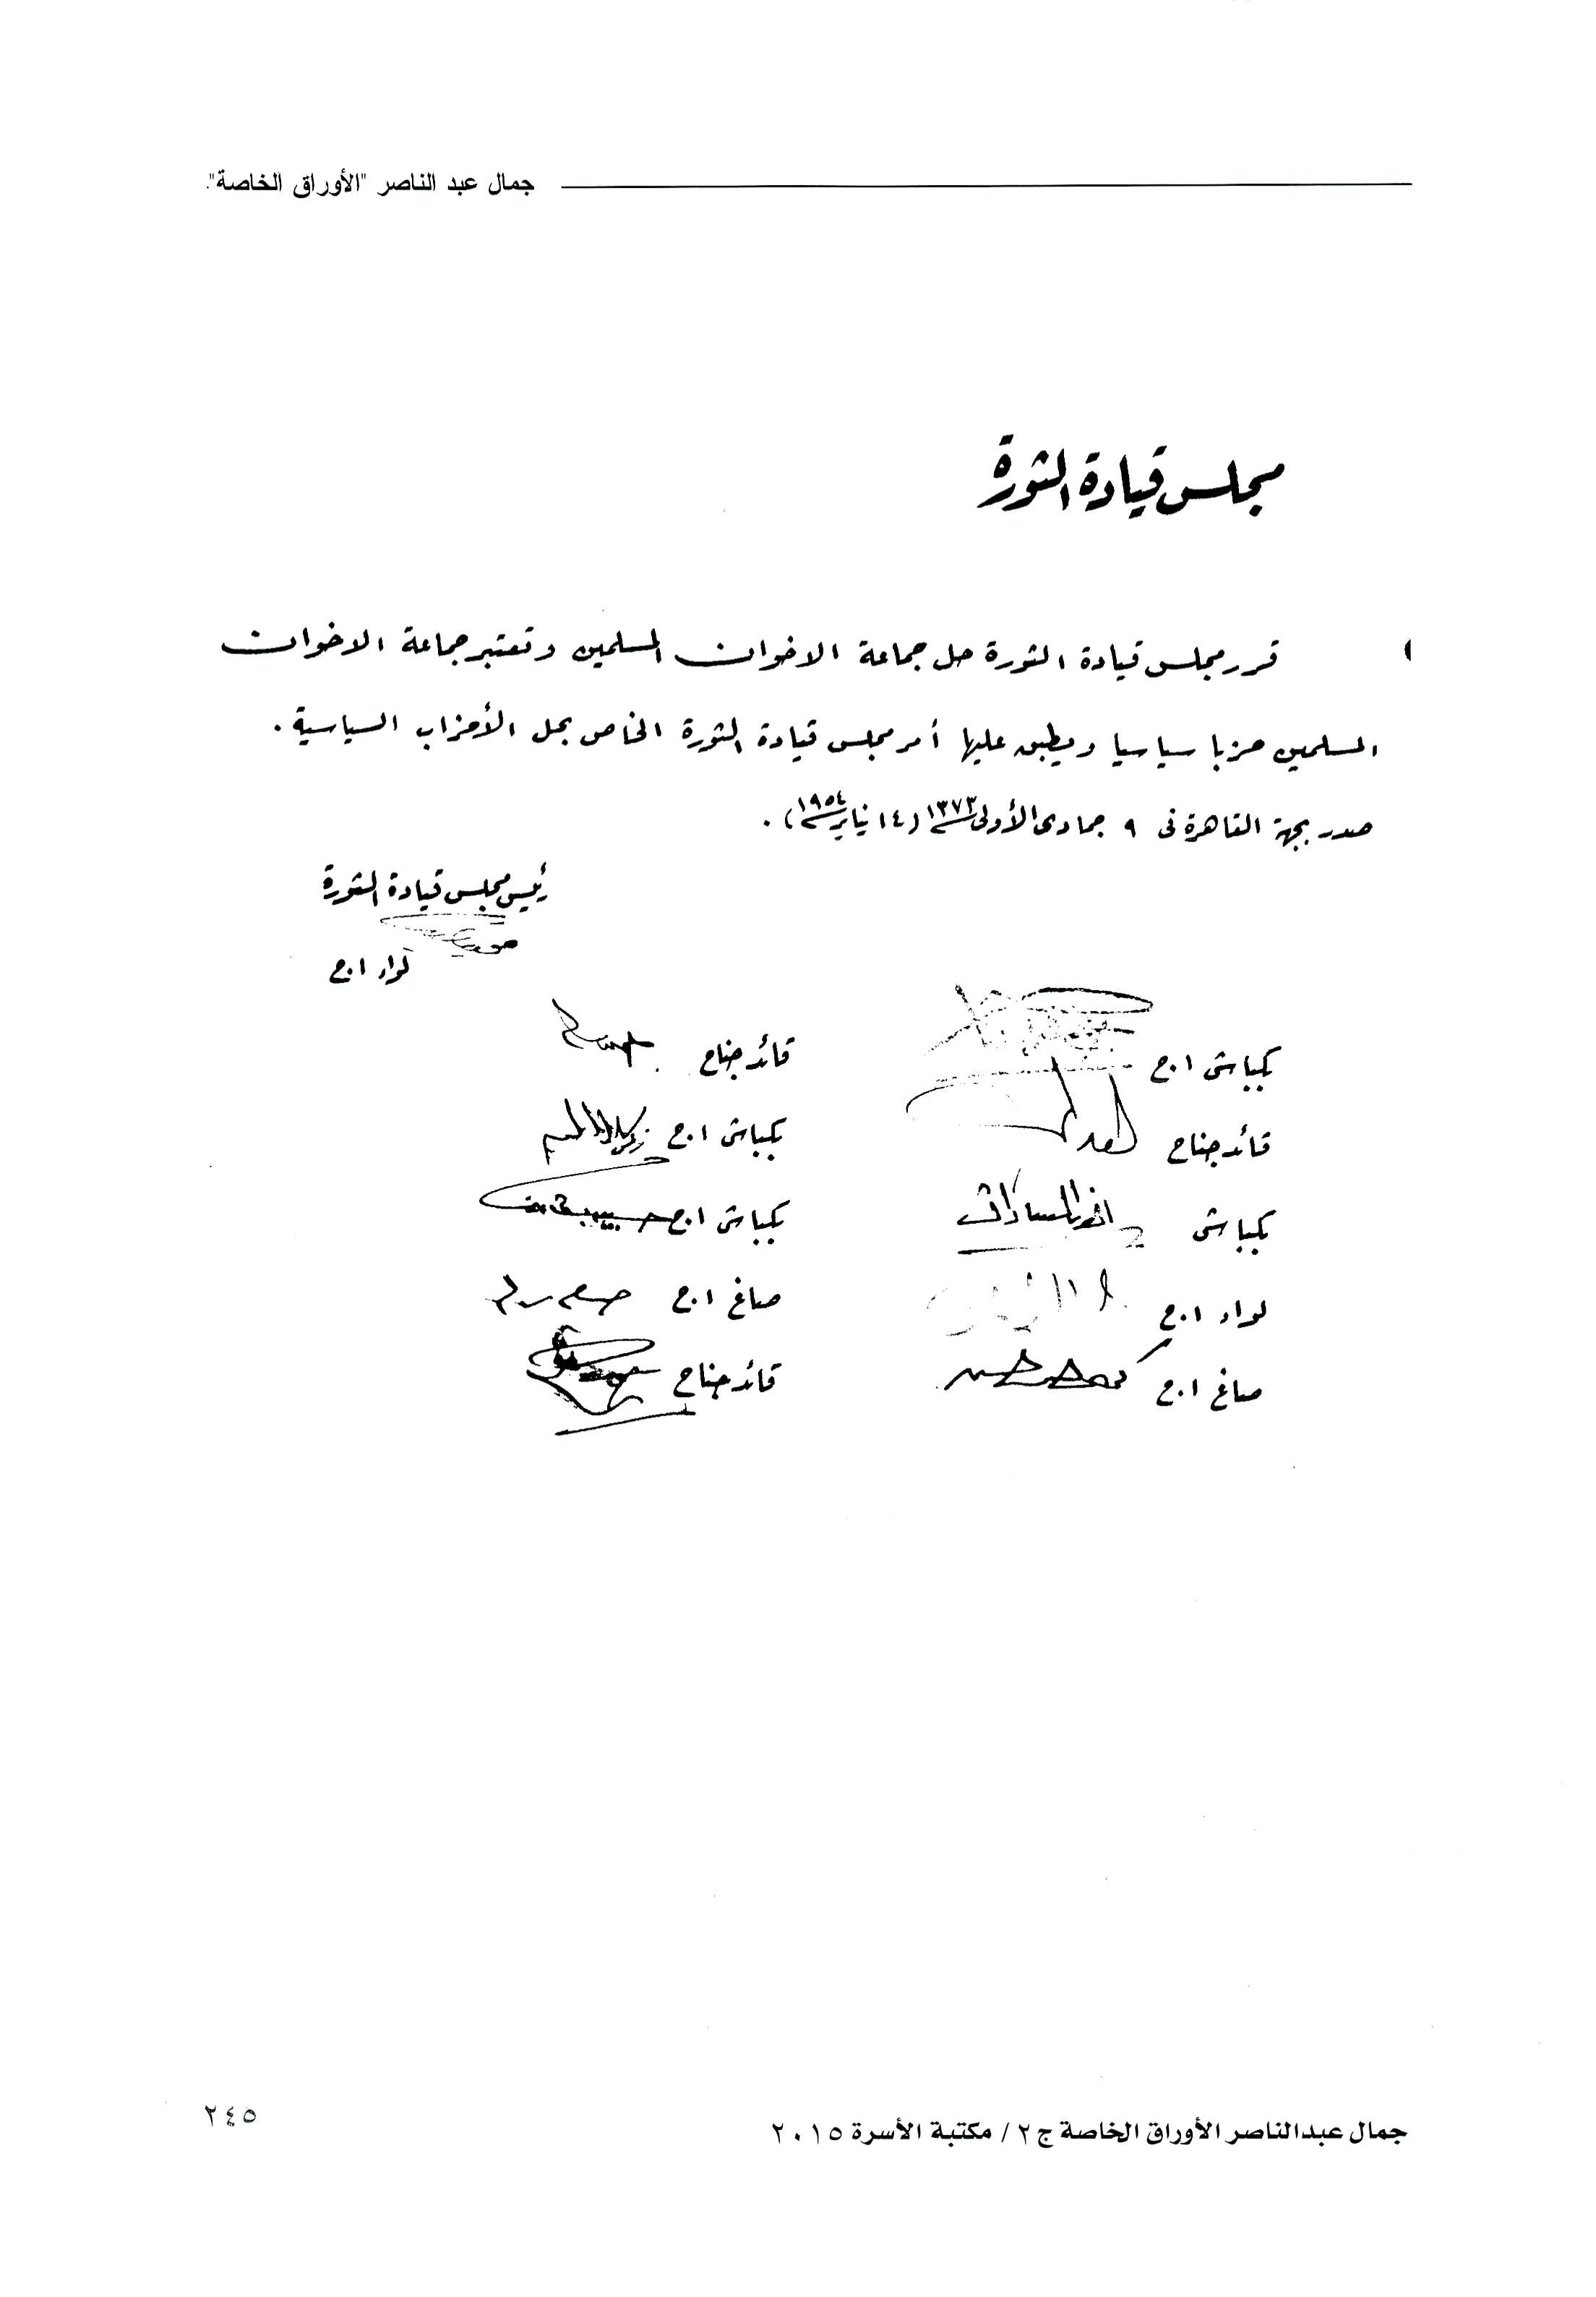 جمال عبد الناصر "الأوراق الخاصة".
مجلس قيادة الثورة
قرر مجلس قيادة الثورة حل جماعة الاخوان المسلمين وتعتبر جماعة الاخوان
المسلمين حزبا سياسيا ويطبق عليها أمر مجلس قيادة الثورة الخاص بحل الأحزاب السياسية .
صدر بجهة القاهرة فى ٩ جمادى الأولى ١٣٧٣ (١٤ يناير ١٩٥٤) .
رئيس مجلس قيادة الثورة
لواء ا.ح
بكباشى ا.ح قائد جناح
قائد جناح بكباشى ا.ح
بكباشى انور السادات بكباشى ا.ح
لواء ا.ح صاغ ا.ح
صاغ ا.ح قائد جناح
جمال عبدالناصر الأوراق الخاصة ج٢ / مكتبة الأسرة ٢٠١٥
٢٤٥